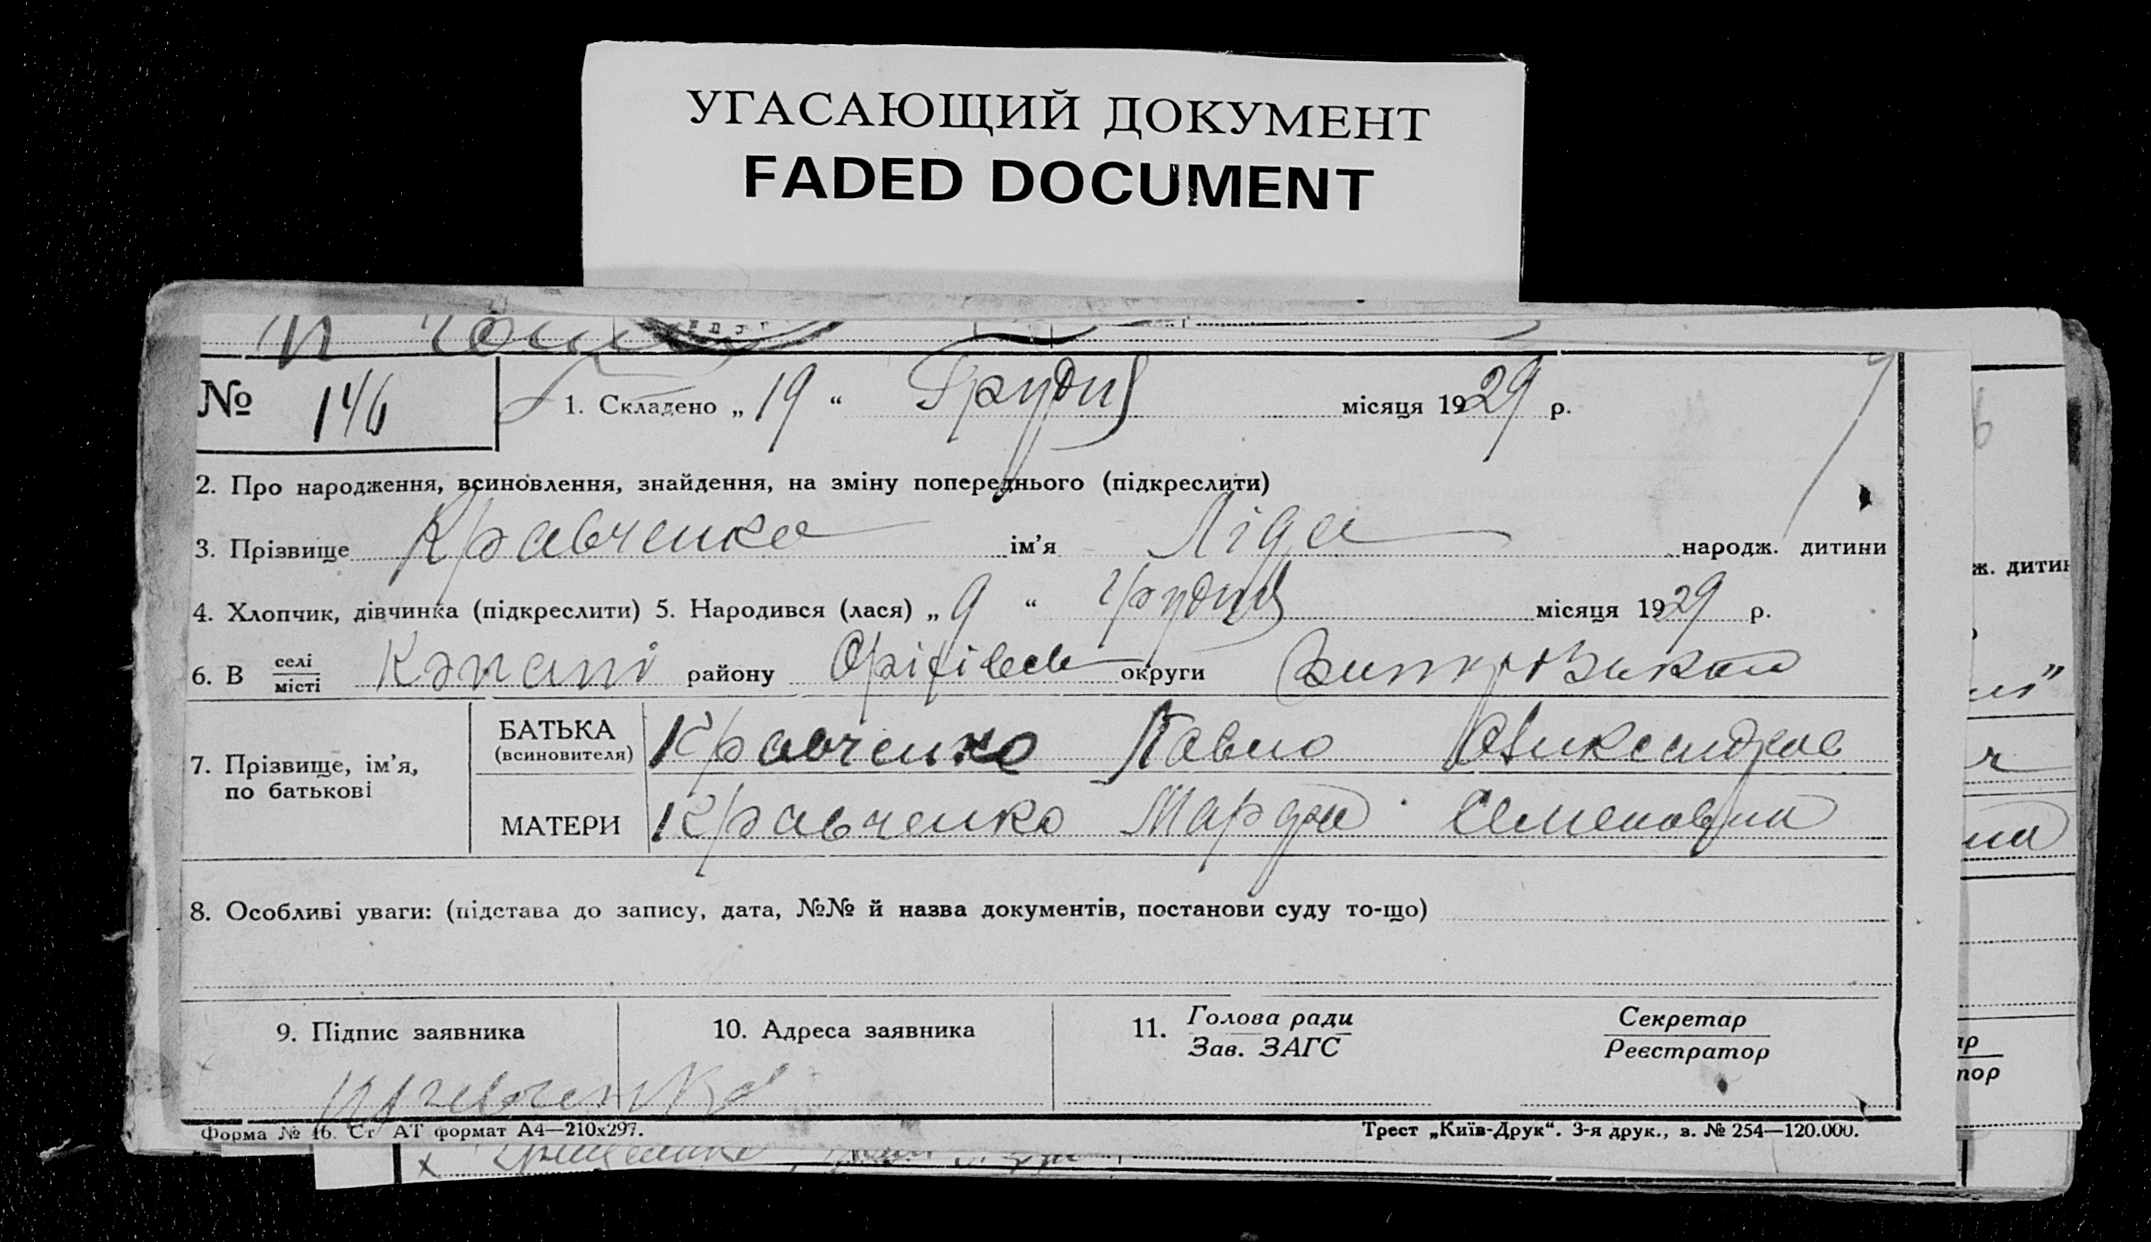 УГАСАЮЩИЙ ДОКУМЕНТ
FADED DOCUMENT
№ 146
1. Складено „ 19 “ Грудня місяця 1929 р.
2. Про народження, всиновлення, знайдення, на зміну попереднього (підкреслити)
3. Прізвище Кравченко ім’я Ліда народж. дитини
ж. дитин
4. Хлопчик, дівчинка (підкреслити) 5. Народився (лася) „ 9 “ Грудня місяця 1929 р.
6. В селі/місті Копані району Оріхівськ округи
7. Прізвище, ім’я, по батькові
БАТЬКА (всиновителя) Кравченко Павло Олександров
МАТЕРИ Кравченко Марфа Семеновна
8. Особливі уваги: (підстава до запису, дата, №№ й назва документів, постанови суду то-що)
9. Підпис заявника
10. Адреса заявника
11. Голова ради / Зав. ЗАГС
Секретар / Реєстратор
Форма № 16. Ст АТ формат А4—210х297.
Трест „Київ-Друк“. 3-я друк., з. № 254—120.000.